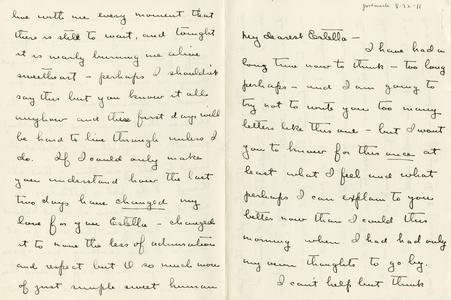 live with me every moment that
there is still to wait, and tonight
it is nearly burning me alive
sweetheart – perhaps I shouldn't
say this but you know it all
anyhow and these first days will
be hard to live through unless I
do. If I could only make
you understand how the last
two days have changed my
love for you Estella – changed
it to none the less of admiration
and respect but O so much more
of just simple sweet human
postmark 8-22-11
My dearest Estella –
I have had a
long time now to think – too long
perhaps – and I am going to
try not to write you too many
letters like this one – but I want
you to know for this once at
least what I feel and what
perhaps I can explain to you
better now than I could this
morning when I had had only
my own thoughts to go by.
I can't help but think